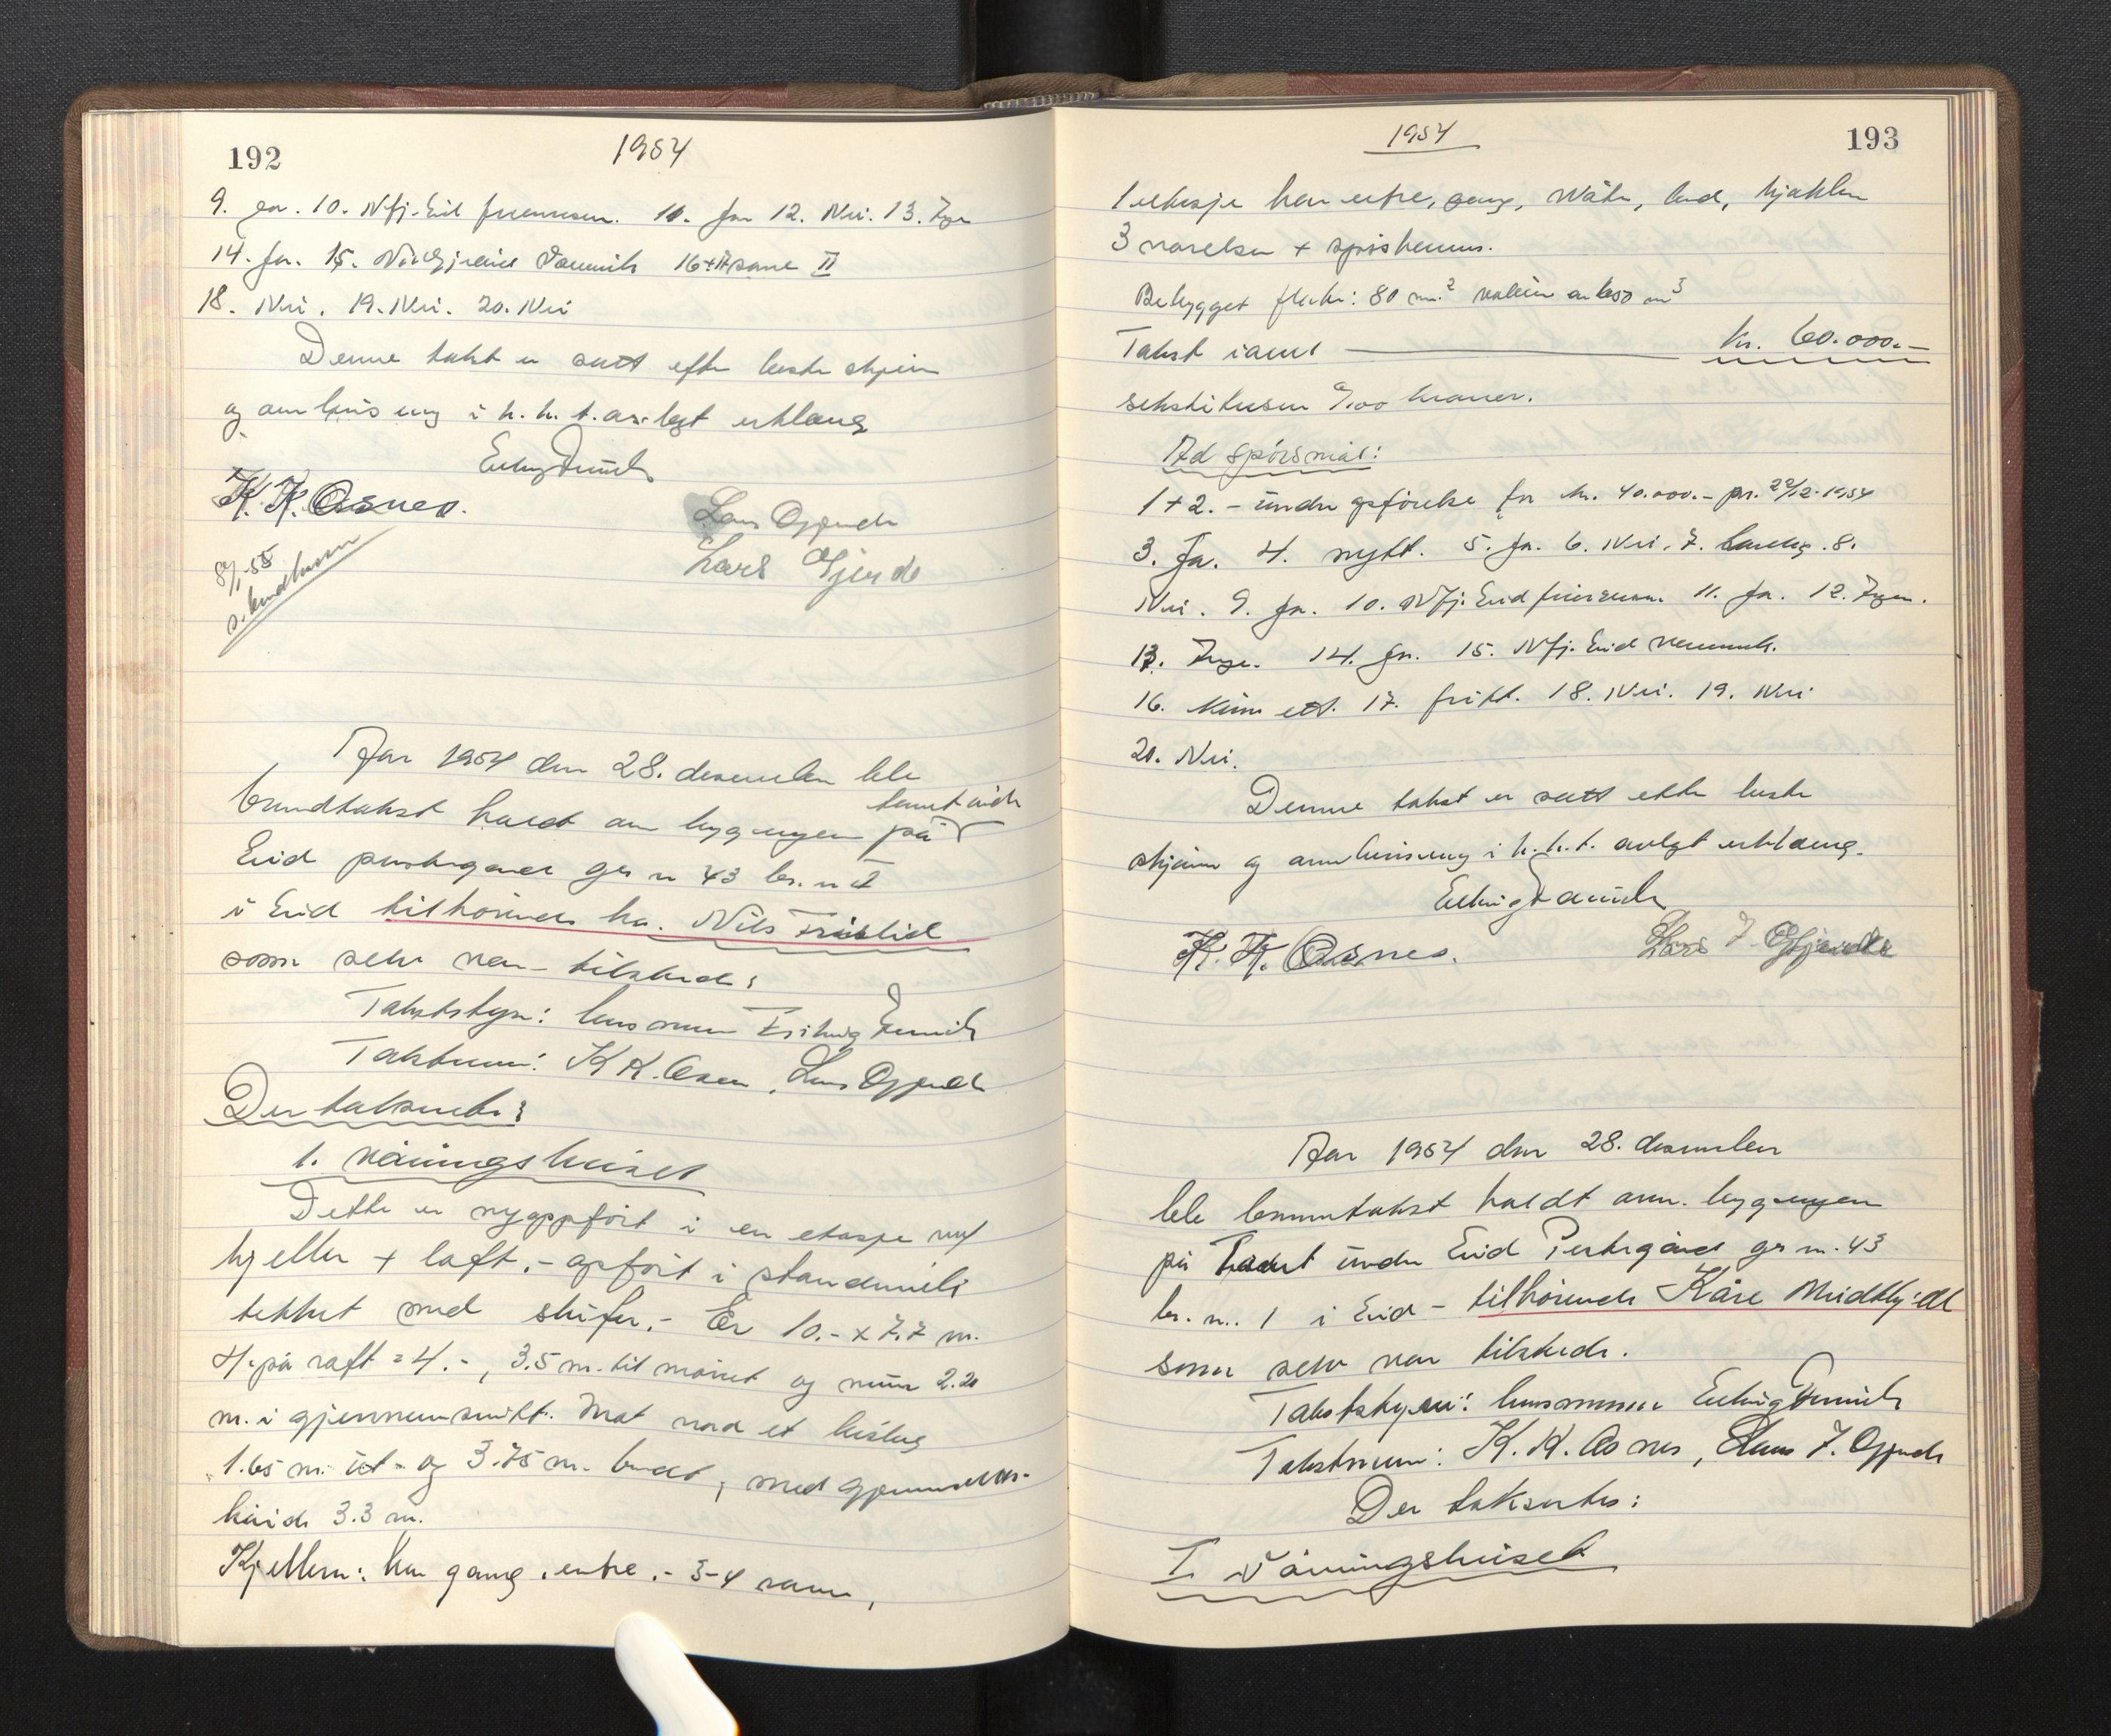 192
1954
9. ja. 10. Nfj. Eid 11. Ja 12. Nei. 13. Inge
14. Ja. 15. 16+17 same II
18. Nei. 19. Nei. 20. Nei
Denne takst er satt efter beste skjøn
og i h. h. t. avlagt erklæring
K. K. Osnes. Lars Gjerde
Lars Gjerde
8/1-55
Aar 1954 den 28. desember ble
tomt
branntakst holdt over bygningen på
Eid prestegard gr n 43 br. n 1
i Eid tilhørende hr. Nils
som selv var tilstede:
Takststyre: lensmann
Takstmenn: K K. Osnes, Lars Gjerde
Der taksertes:
1. Våningshuset
Dette er nyoppført i en etasje med
kjeller + loft. - opført i
tekket med skifer. - Er 10. - x 7.7 m.
H. på raft = 4. -, 3.5 m. til mønet og mur 2.20
m. i gjennemsnitt. Mot nord et
1.65 m. ut - og 3.75 m. bredt, med gjennemsn.
høide 3.3 m.
Kjelleren: har gang, entre. - 3-4 rom,
1954
193
1 etasje har entre, gang, bad, kjøkken
3 værelser + spiskammer.
Bebygget flate: 80 m.² volum m³
Takst i alt kr. 60.000.-
sekstitusen 0/100 kroner.
Ad spørsmål:
1 + 2. - under opførelse for kr. 40.000.- pr. 22/12-1954
3. Ja. 4. nytt. 5. Ja. 6. Nei. 7. 8.
Nei. 9. Ja. 10. Nfj. Eid 11. Ja. 12. Ingen.
13. Inge. 14. Ja. 15. Nfj. Eid
16. Kun ett. 17. fritt. 18. Nei. 19. Nei
20. Nei.
Denne takst er satt etter beste
skjønn og i h. h. t. avlagt erklæring.
K. K. Osnes. Lars J. Gjerde
Aar 1954 den 28. desember
ble branntakst holdt over bygningen
på tomt under Eid Prestegård gr n. 43
br. n. 1 i Eid - tilhørende Kåre
som selv var tilstede.
Takststyrer: lensmann
Takstmenn: K. K. Osnes, Lars J. Gjerde
Der taksertes:
I Våningshuset